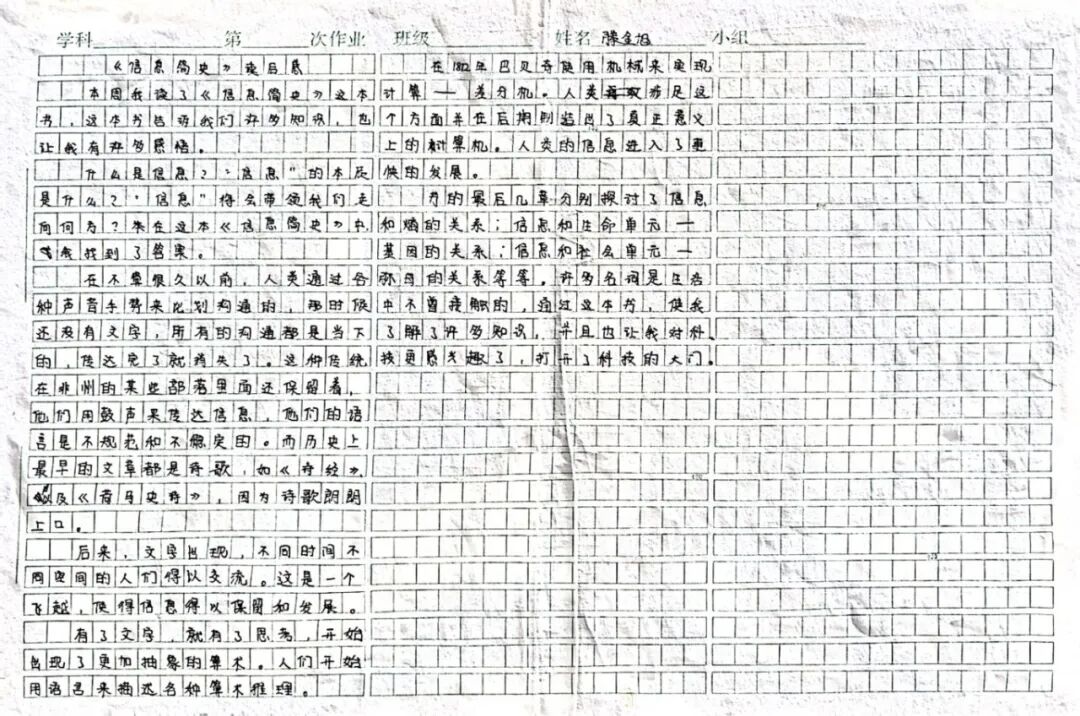 学科 第 次作业 班级 姓名 滕金旭 小组
《信息简史》读后感
本周我读了《信息简史》这本
书,这本书告诉我们许多知识,也
让我有许多感悟。
什么是信息?"信息"的本质
是什么?"信息"将会带领我们走
向何方?朱在这本《信息简史》中,
我找到了答案。
在不算很久以前,人类通过各
种声音手势来比划沟通的,那时候
还没有文字,所有的沟通都是当下
的,传达完了就消失了。这种传统
在非州的某些部落里面还保留着,
他们用鼓声来传达信息,他们的语
言是不规范和不稳定的。而历史上
最早的文章都是诗歌,如《诗经》
以及《荷马史诗》,因为诗歌朗朗
上口。
后来,文字出现,不同时间不
同空间的人们得以交流。这是一个
飞越,使得信息得以保留和发展。
有了文字,就有了思考,开始
出现了更加抽象的算术。人们开始
用语言来描述各种算术推理。
在1812年巴贝奇使用机械来实现
计算——差分机。人类 涉足这
个方面并在后期创造出了真正意义
上的计算机。人类的信息进入了更
快的发展。
书的最后几章分别探讨了信息
和熵的关系;信息和生命单元—
基因的关系;信息和社会单元—
弥母的关系等等。许多名词是生活
中不曾接触的,通过这本书,使我
了解了许多知识,并且也让我对科
技更感兴趣了,打开了科技的大门。